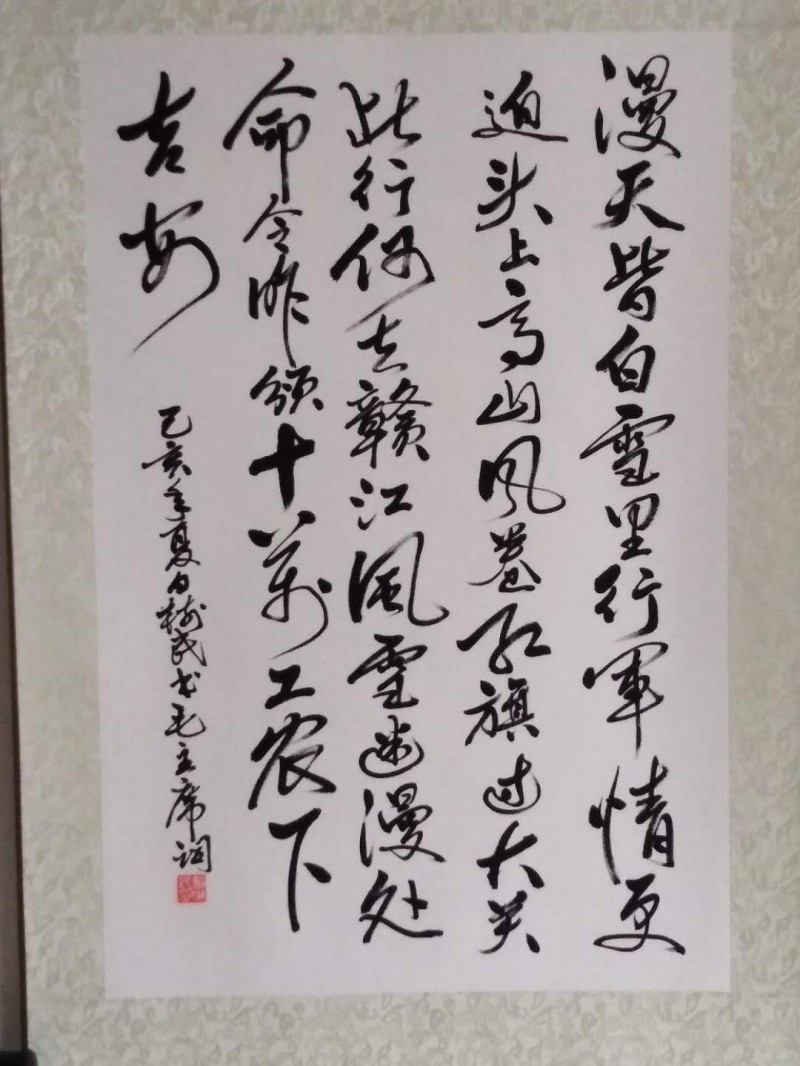 漫天皆白雪里行军情更
迫头上高山风卷红旗过大关
此行何去赣江风雪迷漫处
命令昨颁十萬工农下
吉安
己亥年夏白树民书毛主席词